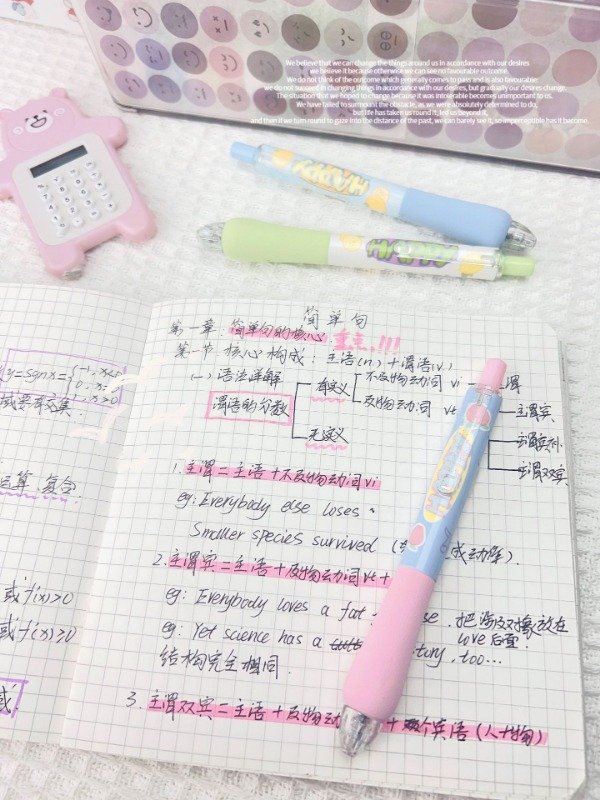 We believe that we can change the things around us in accordance with our desires
we believe it because otherwise we can see no favourable outcome.
We do not think of the outcome which generally comes to pass and is also favourable:
we do not succeed in changing things in accordance with our desires, but gradually our desires change.
The situation that we hoped to change because it was intolerable becomes unimportant to us.
We have failed to surmount the obstacle, as we were absolutely determined to do,
but life has taken us round it, led us beyond it,
and then if we turn round to gaze into the distance of the past, we can barely see it, so imperceptible has it become
HAPPY
HAPPY
简单句
第一章 简单句的核心 重点!!!
第一节 核心构成: 主语(n) + 谓语(v)
(一) 语法详解
有义 不及物动词 vi 主谓
谓语的分类
及物动词 vt 主谓宾
无定义
主谓宾补
主谓双宾
1. 主谓 = 主语 + 不及物动词vi
eg: Everybody else loses.
Smaller species survived
成动作).
2. 主谓宾 = 主语 + 及物动词vt +
eg: Everybody loves a fat
把 放在
love后面.
eg: Yet science has a
too...
结构完全相同.
3. 主谓双宾 = 主语 + 及物动 + 宾语 (人+物)
y = sgn x =
域要有交集.
运算、复合.
或f(x)>0
或f(x)≥0
域